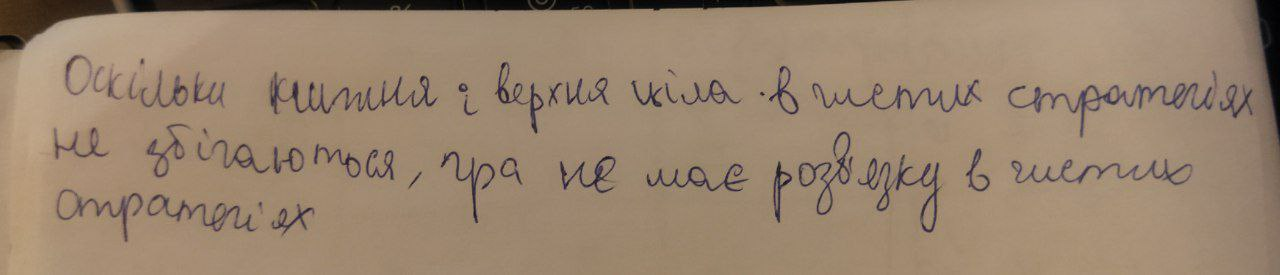 Оскільки нижня і верхня ціла в чистих стратегіях
не збігаються, гра не має розв'язку в чистих
стратегіях